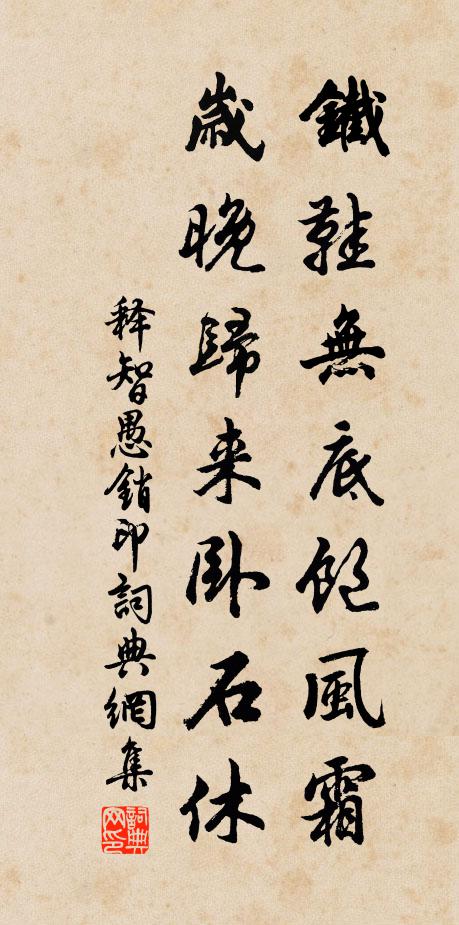 鐵鞋無底飽風霜
歲晚歸来卧石休
释智愚銷印詞典網集
詞典网印